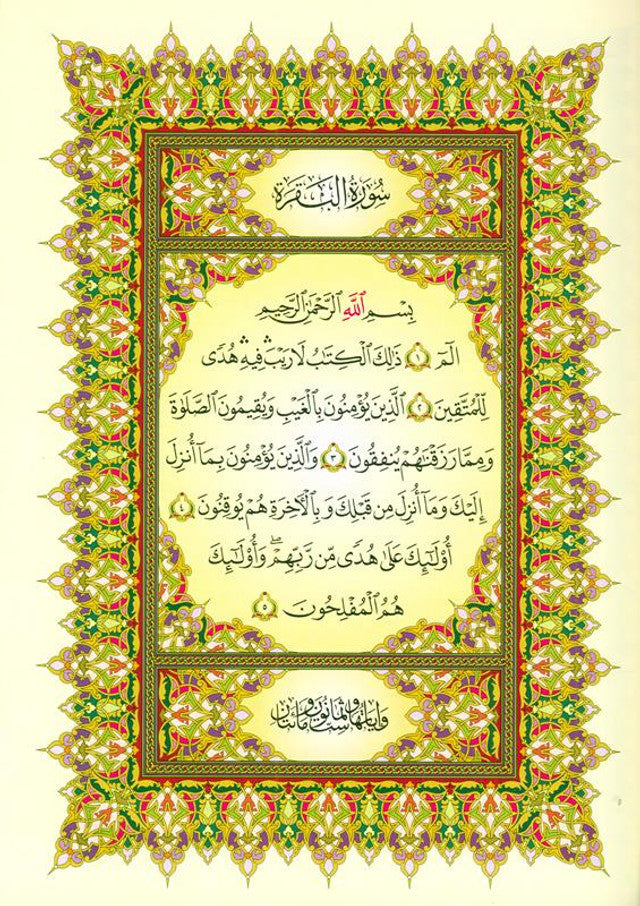 سُورَةُ الْبَقَرَةِ
بِسْمِ اللَّهِ الرَّحْمَٰنِ الرَّحِيمِ
الٓمٓ ١ ذَٰلِكَ الْكِتَٰبُ لَا رَيْبَ ۛ فِيهِ ۛ هُدًى
لِّلْمُتَّقِينَ ٢ الَّذِينَ يُؤْمِنُونَ بِالْغَيْبِ وَيُقِيمُونَ الصَّلَوٰةَ
وَمِمَّا رَزَقْنَٰهُمْ يُنفِقُونَ ٣ وَالَّذِينَ يُؤْمِنُونَ بِمَآ أُنزِلَ
إِلَيْكَ وَمَآ أُنزِلَ مِن قَبْلِكَ وَبِالْآخِرَةِ هُمْ يُوقِنُونَ ٤
أُو۟لَٰٓئِكَ عَلَىٰ هُدًى مِّن رَّبِّهِمْ ۖ وَأُو۟لَٰٓئِكَ
هُمُ الْمُفْلِحُونَ ٥
وَآيَاتُهَا سِتٌّ وَثَمَانُونَ وَمِائَتَانِ